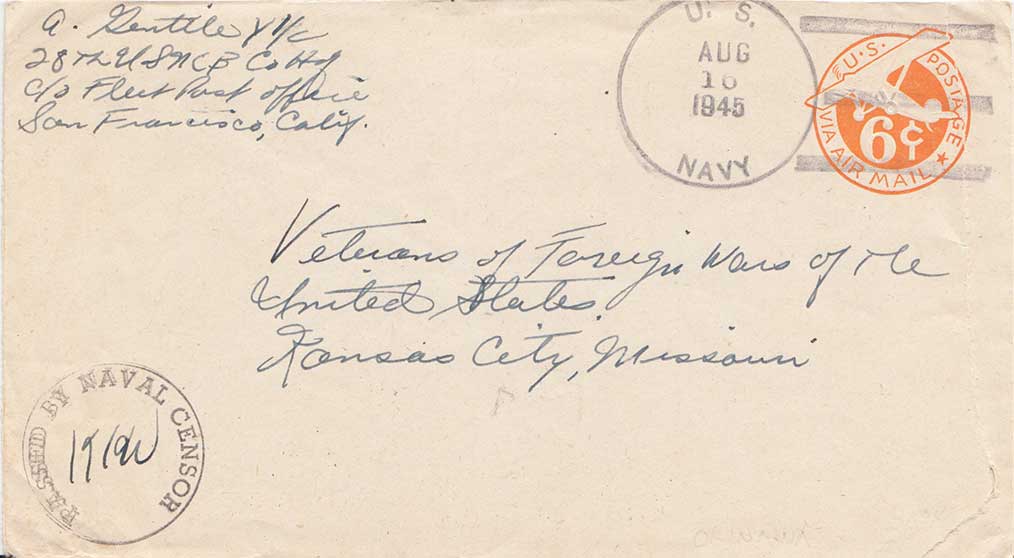 A. Gentile Y1/c
28th USNCB Co Hq
c/o Fleet Post Office
San Francisco, Calif.
U. S.
AUG
16
1945
NAVY
U.S. POSTAGE
6¢
VIA AIR MAIL
Veterans of Foreign Wars of the
United States.
Kansas City, Missouri
PASSED BY NAVAL CENSOR
OKINAWA